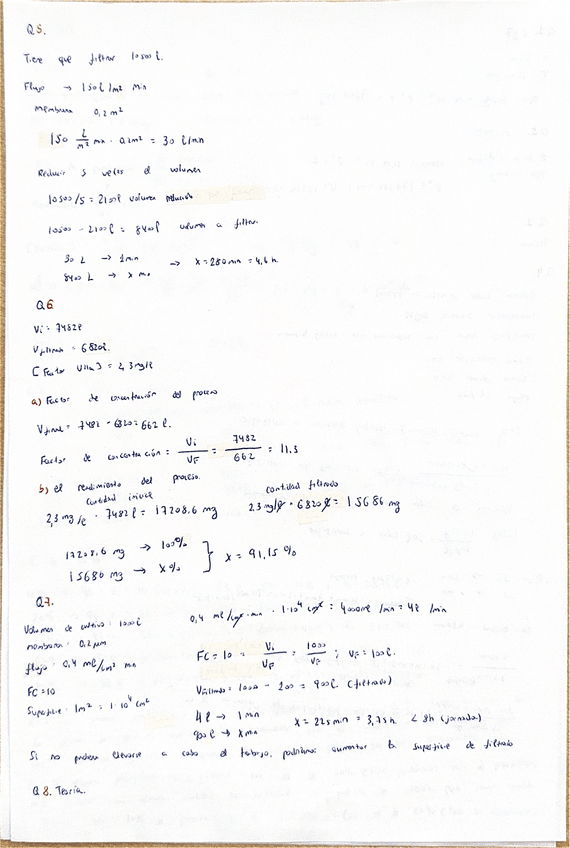 Q5.
Tiene que filtrar 10500 l.
Flujo → 150 l/m² min
membrana 0,2 m²
150 L/m² min · 0,2m² = 30 l/min
Reducir 5 veces el volumen
10500/5 = 2100 l volumen reducido
10500 - 2100 l = 8400 l volumen a filtrar
30 L → 1 min
8400 L → x min → x = 280 min = 4,6 h.
Q6
Vi = 7482 l
Vfiltrado = 6820 l.
[Factor VIII] = 2,3 mg/l
a) Factor de concentración del proceso
Vfinal = 7482 - 6820 = 662 l.
Factor de concentración = Vi/VF = 7482/662 = 11.3
b) el rendimiento del proceso.
cantidad inicial cantidad filtrado
2,3 mg/l · 7482 l = 17208.6 mg 2.3 mg/l · 6820 l = 15686 mg
17208.6 mg → 100%
15686 mg → X% } x = 91,15 %
Q7.
Volumen de cultivo: 1000 l 0,4 ml/cm² min · 1·10⁴ cm² = 4000 ml /min = 4 l /min
membrana: 0,2 µm
flujo: 0,4 ml/cm² min FC = 10 = Vi/VF = 1000/VF ; VF = 100 l.
FC = 10
Superficie: 1m² = 1·10⁴ cm² Vfiltrado = 1000 - 100 = 900 l. (filtrado)
4 l → 1 min
900 l → x min x = 225 min = 3,75 h < 8h (jornada)
Si no pudiera llevarse a cabo el trabajo, podríamos aumentar la superficie de filtrado
Q8. Teoría.